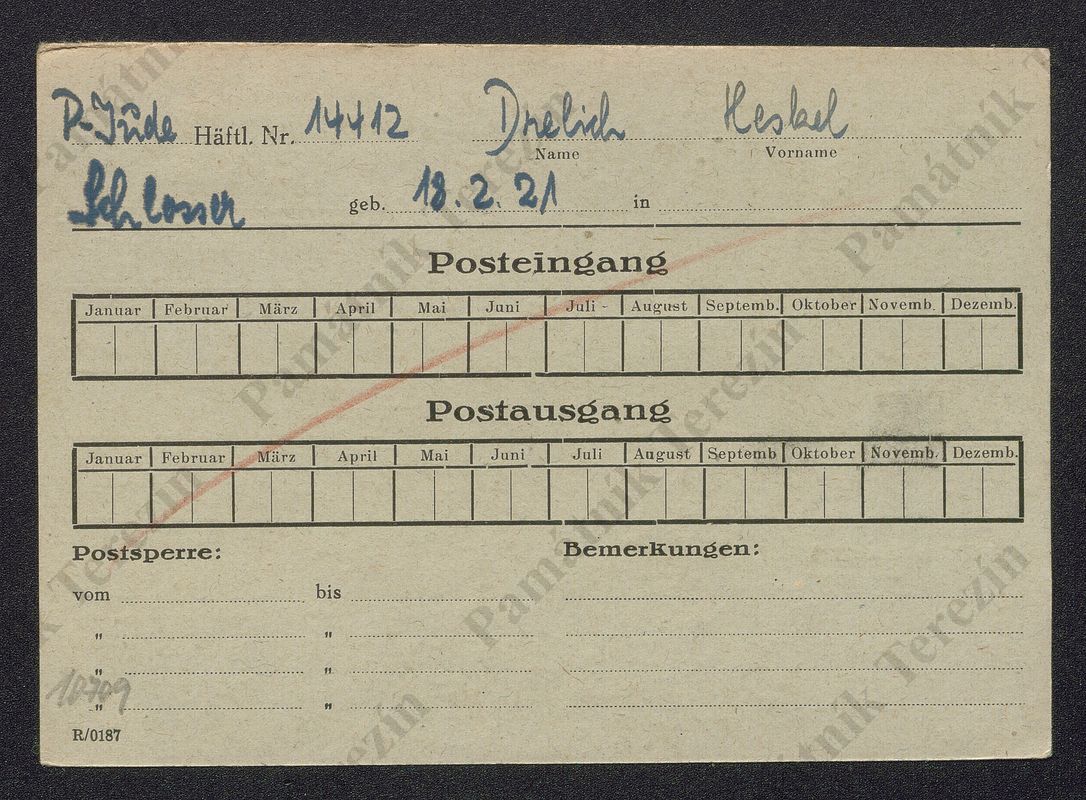 P-Jude Häftl. Nr. 14412 Drelich Heskel
Name Vorname
Schlosser geb. 18.2.21 in
Posteingang
Januar Februar März April Mai Juni Juli August Septemb. Oktober Novemb. Dezemb.
Postausgang
Januar Februar März April Mai Juni Juli August Septemb Oktober Novemb. Dezemb.
Postsperre: Bemerkungen:
vom bis
" "
" "
10709
" "
R/0187
Památník Terezín